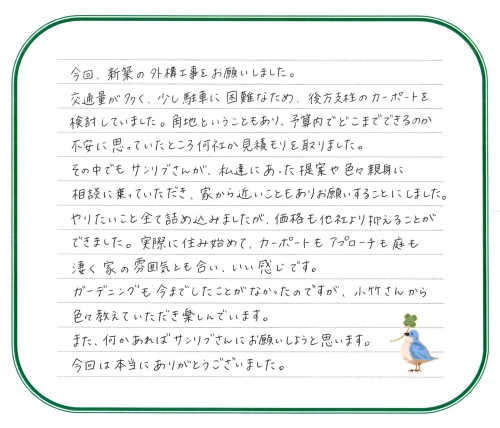 今回、新築の外構工事をお願いしました。
交通量が多く、少し駐車に困難なため、後方支柱のカーポートを
検討していました。角地ということもあり、予算内でどこまでできるのか
不安に思っていたところ何社か見積もりを取りました。
その中でもサンリブさんが、私達にあった提案や色々親身に
相談に乗っていただき、家から近いこともありお願いすることにしました。
やりたいこと全て詰め込みましたが、価格も他社より抑えることが
できました。実際に住み始めて、カーポートもアプローチも庭も
凄く家の雰囲気とも合い、いい感じです。
ガーデニングも今までしたことがなかったのですが、小竹さんから
色々教えていただき楽しんでいます。
また、何かあればサンリブさんにお願いしようと思います。
今回は本当にありがとうございました。